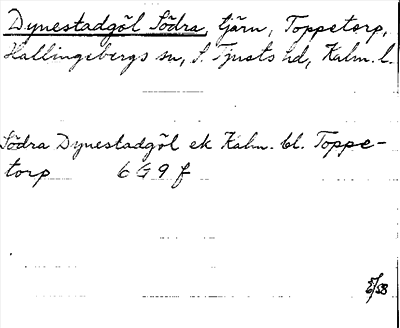 Dynestadgöl Södra, tjärn, Toppetorp,
Hallingebergs sn, S. Tjusts hd, Kalm. l.
Södra Dynestadgöl ek Kalm. bl. Toppe-
torp 6 G 9 f
5/58